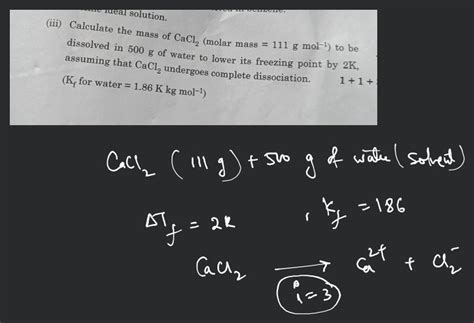 ideal solution.
(iii) Calculate the mass of CaCl₂ (molar mass = 111 g mol⁻¹) to be
dissolved in 500 g of water to lower its freezing point by 2K,
assuming that CaCl₂ undergoes complete dissociation. 1+1+
(K_f for water = 1.86 K kg mol⁻¹)
CaCl₂ (111 g) + 500 g of water (solvent)
ΔT_f = 2K , K_f = 186
CaCl₂ ⟶ Ca²⁺ + Cl₂⁻
i = 3